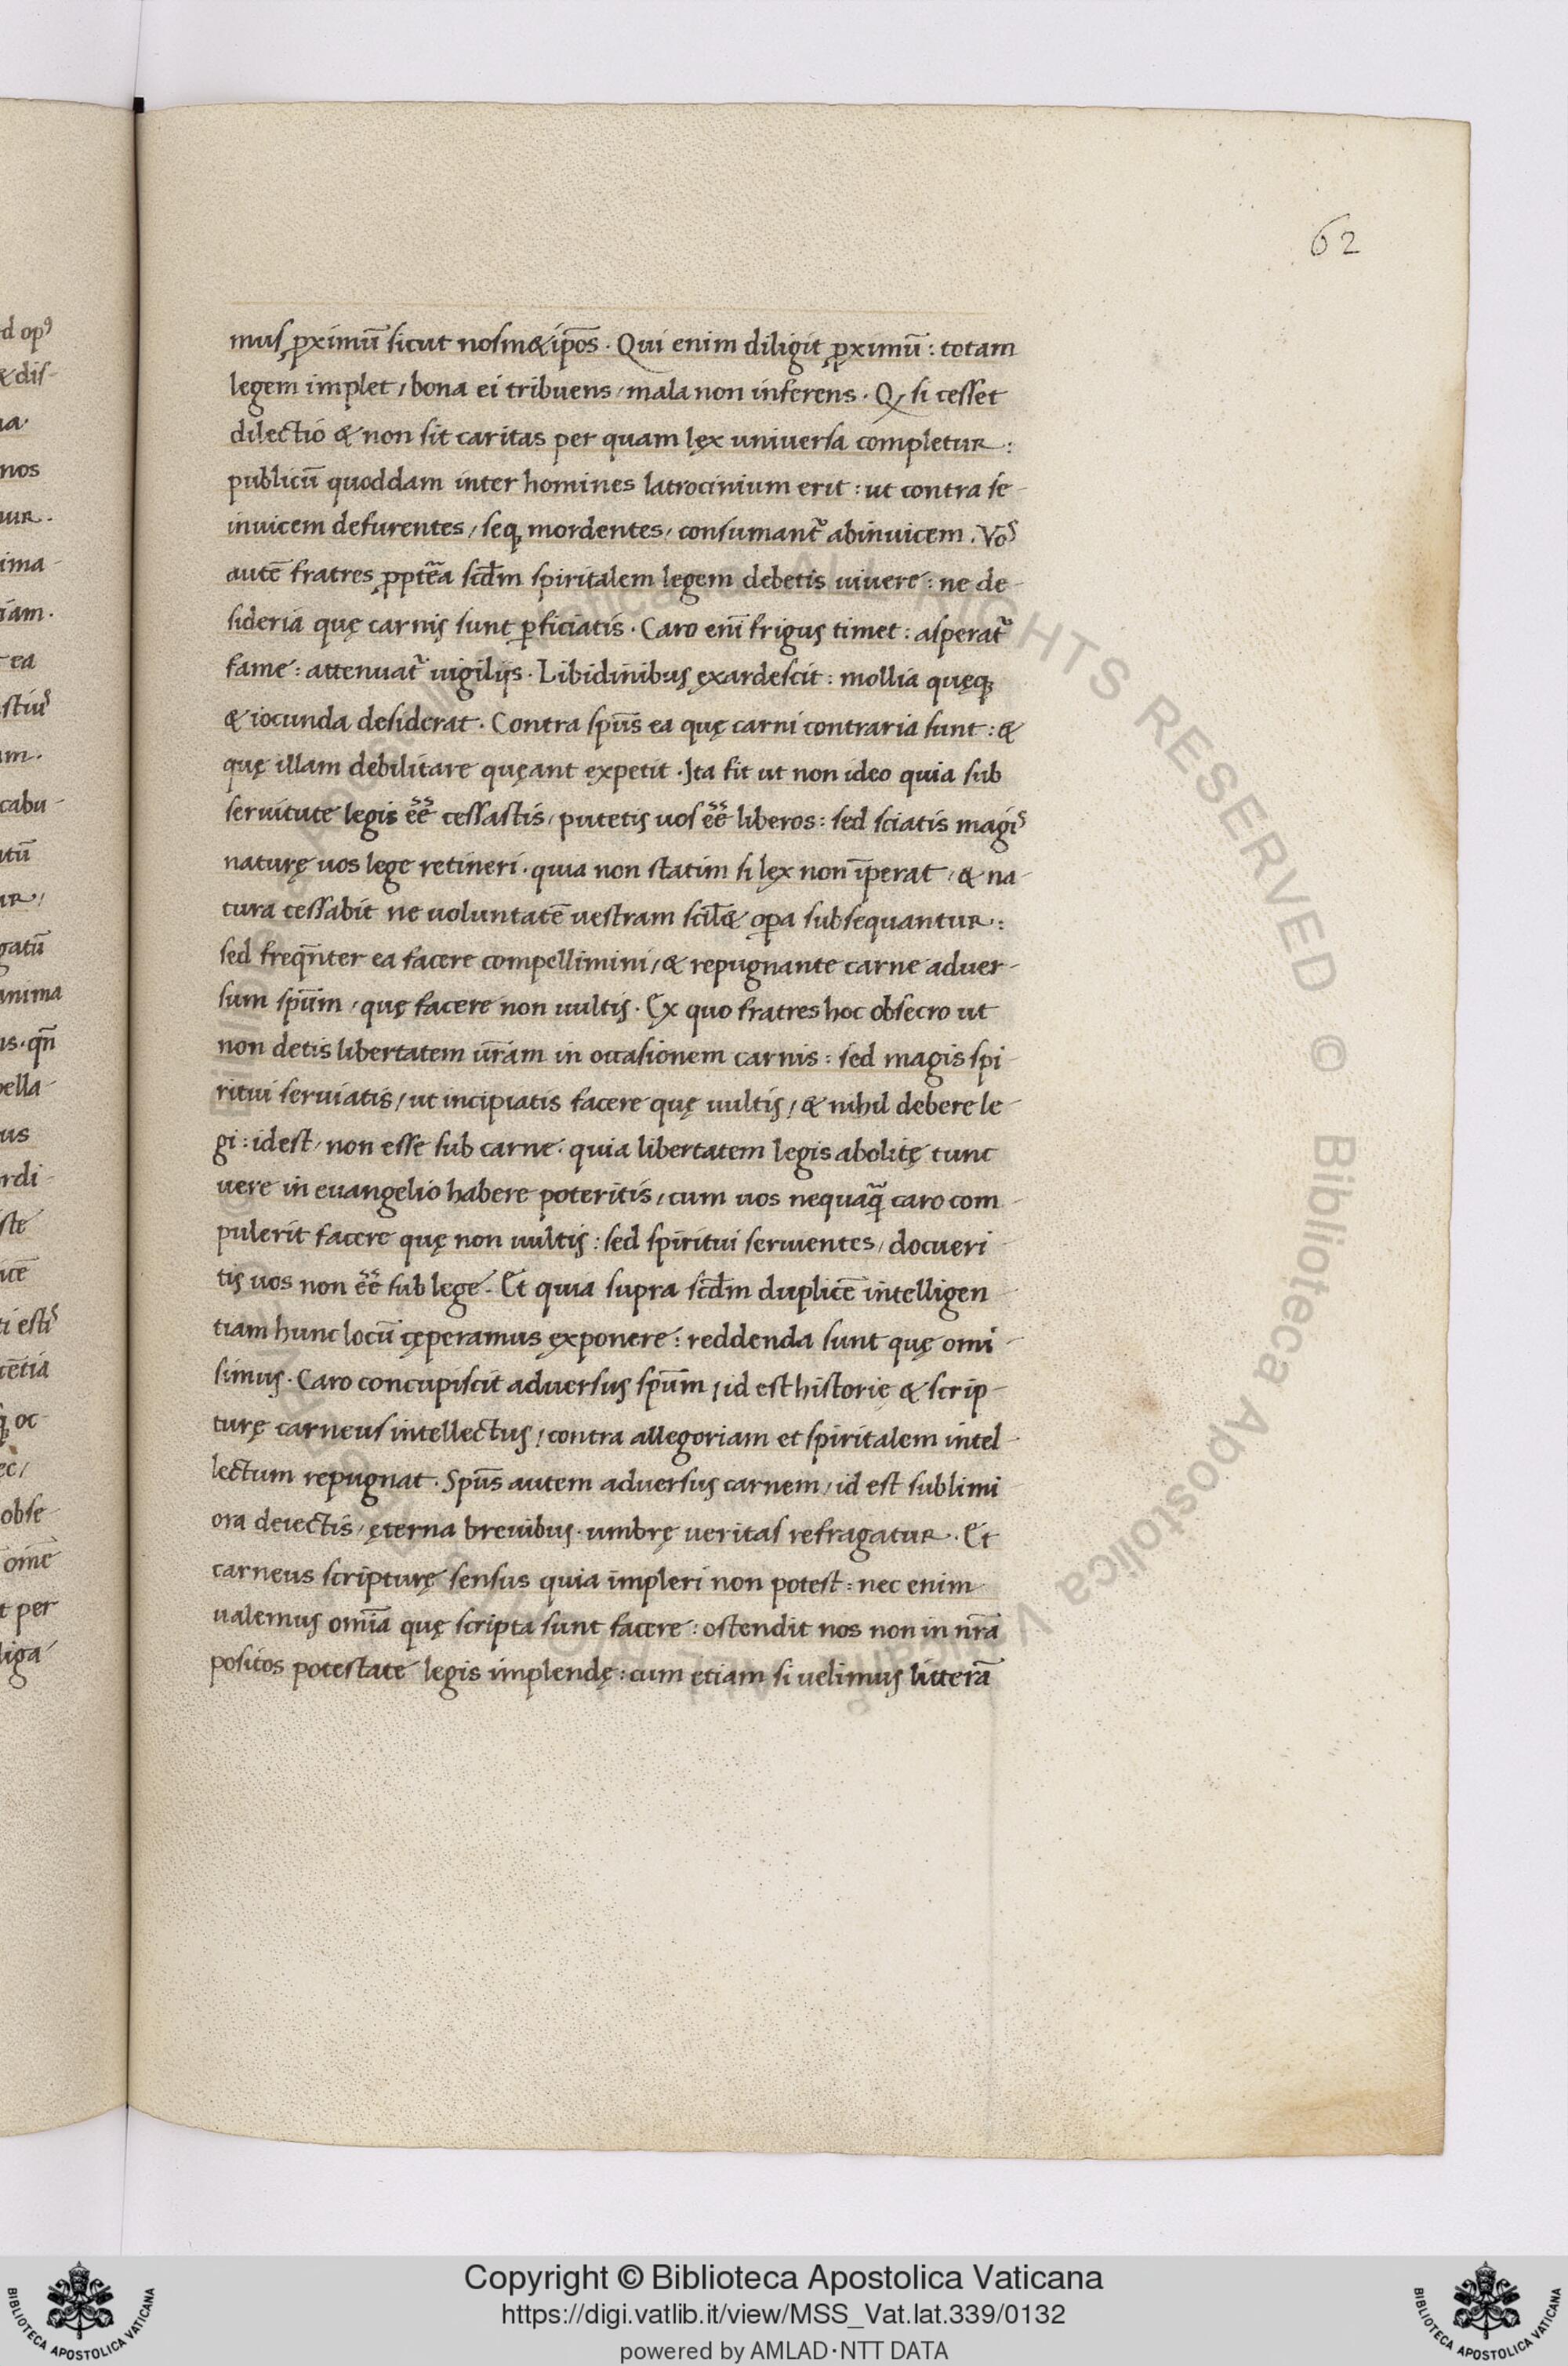 62
mus ꝓximū sicut nosm&ip̄os. Qui enim diligit ꝓximū: totam
legem implet, bona ei tribuens, mala non inferens. Q, si cesset
dilectio & non sit caritas per quam lęx uniuersa completur:
publicū quoddam inter homines latrocinium erit: ut contra se-
inuicem defurentes, seq; mordentes, consumant᷑ abinuicem. Vos
autē fratres ꝓptēa scd̄m spiritalem legem debetis uiuere: ne de-
sideria quę carnis sunt ꝑficiatis. Caro eni᷑ frigus timet: asperat᷑
fame: attenuat᷑ uigilijs. Libidinibus ęxardescit: mollia quęq;
& iocunda desiderat. Contra sp̄us ea quę carni contraria sunt: &
quę illam debilitare quęant expetit. Ita fit ut non ideo quia sub
seruitute legis e͛e͛ cessastis, putetis uos e͛e͛ liberos: sed sciatis magis
naturę uos lege retineri. quia non statim si lęx non īperat, & na-
tura cessabit ne uoluntatē uestram scil& oꝑa subsequantur:
sed freq̄nter ea facere compellimini, & repugnante carne aduer-
sum sp̄um, quę facere non uultis. Ex quo fratres hoc obsecro ut
non detis libertatem ūram in occasionem carnis: sed magis spi-
ritui seruiatis, ut incipiatis facere quę uultis, & nihil debere le-
gi: idest, non esse sub carne. quia libertatem legis abolitę tunc
uere in euangelio habere poteritis, cum uos nequaq̄ caro com-
pulerit facere quę non uultis: sed spiritui seruientes, docueri-
tis uos non e͛e͛ sub lege. Et quia supra scd̄m duplicē intelligen-
tiam hunc locū cęperamus ęxponere: reddenda sunt quę omi-
simus. Caro concupiscit aduersus sp̄um, id est historię & scrip-
turę carneus intellectus, contra allegoriam et spiritalem intel-
lectum repugnat. Sp̄us autem aduersus carnem, id est sublimi-
ora deiectis, ęterna breuibus. umbrę ueritas refragatur. Et
carneus scripturę sensus quia impleri non potest: nec enim
ualemus om̄ia quę scripta sunt facere: ostendit nos non in nr̄a
positos potestate legis implendę: cum etiam si uelimus litterā
d opꝰ
& dis-
na.
nos
uur.
ima-
iam.
ea
um.
cabu-
tū
ur,
gatū
anima
us. qn̄
pella-
us
rdi-
ste
icē
ti estis
tētia
q; oc-
ec,
obse-
omē
t per
liga-
© Biblioteca Apostolica Vaticana ALL RIGHTS RESERVED © Biblioteca Apostolica Vaticana ALL RIGHTS RESERVED
Copyright © Biblioteca Apostolica Vaticana
https://digi.vatlib.it/view/MSS_Vat.lat.339/0132
powered by AMLAD·NTT DATA
BIBLIOTECA APOSTOLICA VATICANA
BIBLIOTECA APOSTOLICA VATICANA